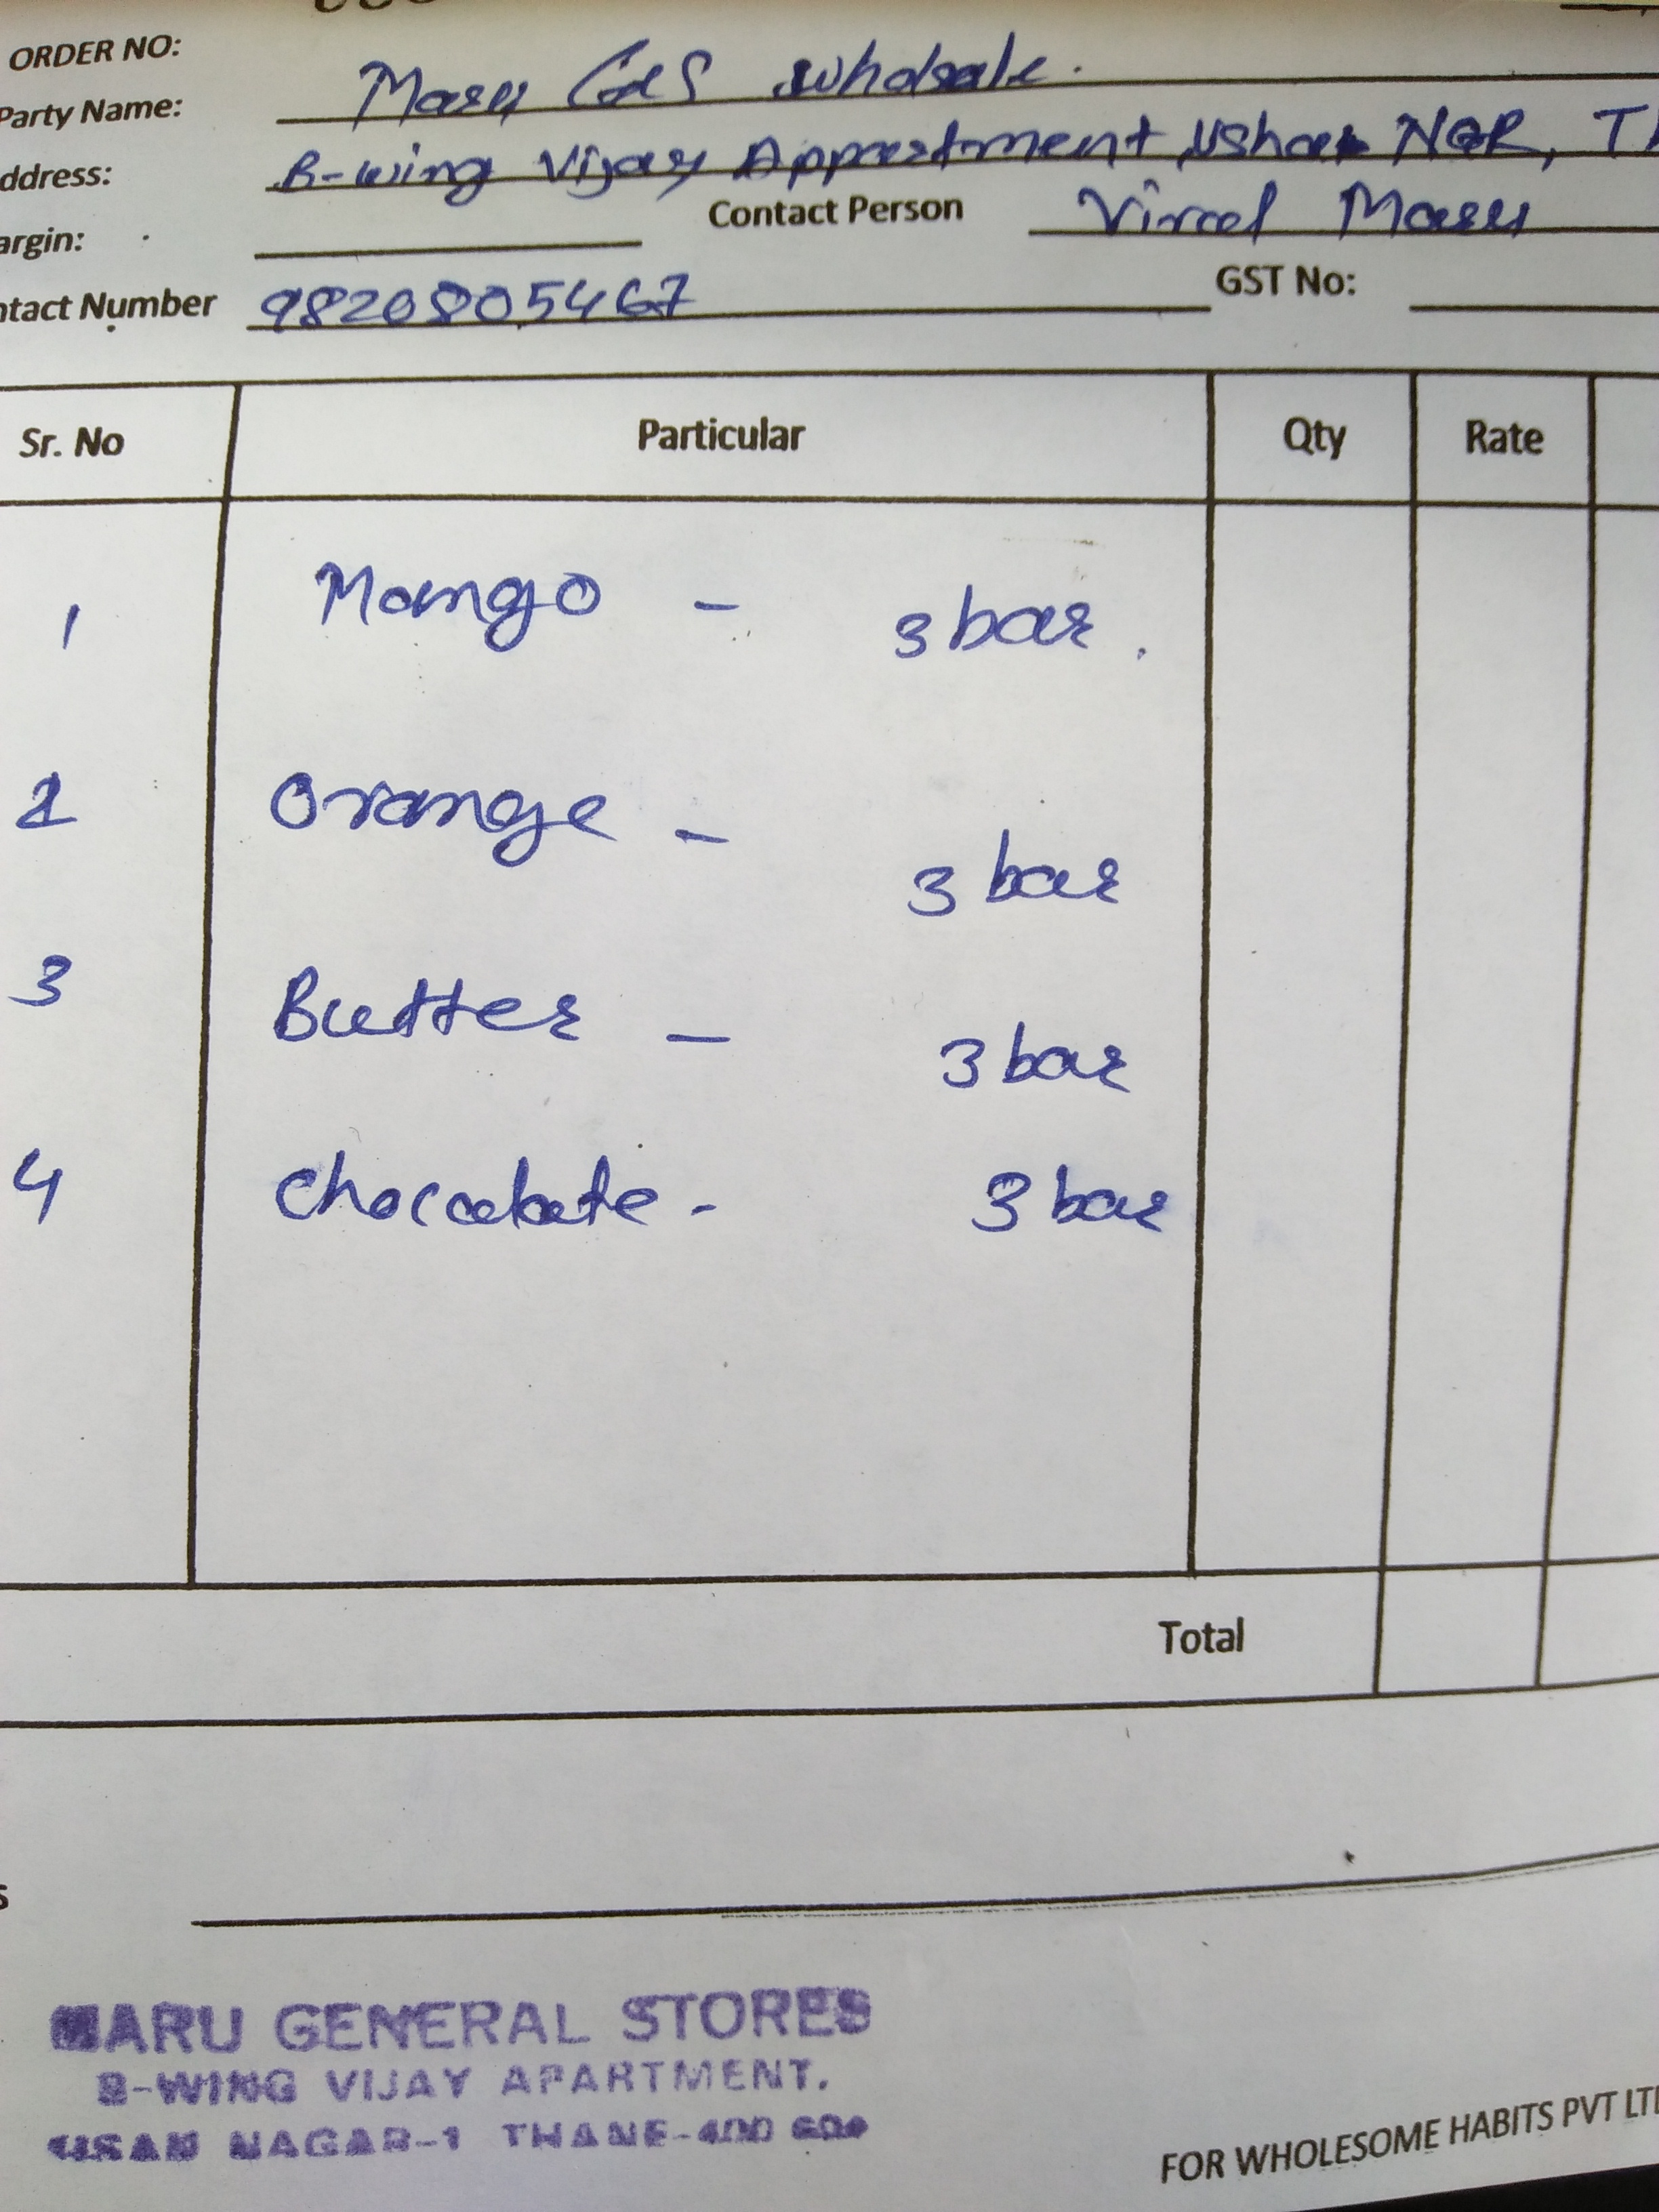 ORDER NO:
Party Name: Maru G&S wholsale.
ddress: B-wing Vijay Appartment Usha NGR, Th
argin: Contact Person Viral Maru
ntact Number 9820805467 GST No:
Sr. No Particular Qty Rate
1 Mango - 3 bar.
2 Orange - 3 bar
3 Butter - 3 bar
4 Chocolate - 3 bar
Total
s
MARU GENERAL STORES
B-WING VIJAY APARTMENT.
NAGAR-1 THANE-400
FOR WHOLESOME HABITS PVT LT